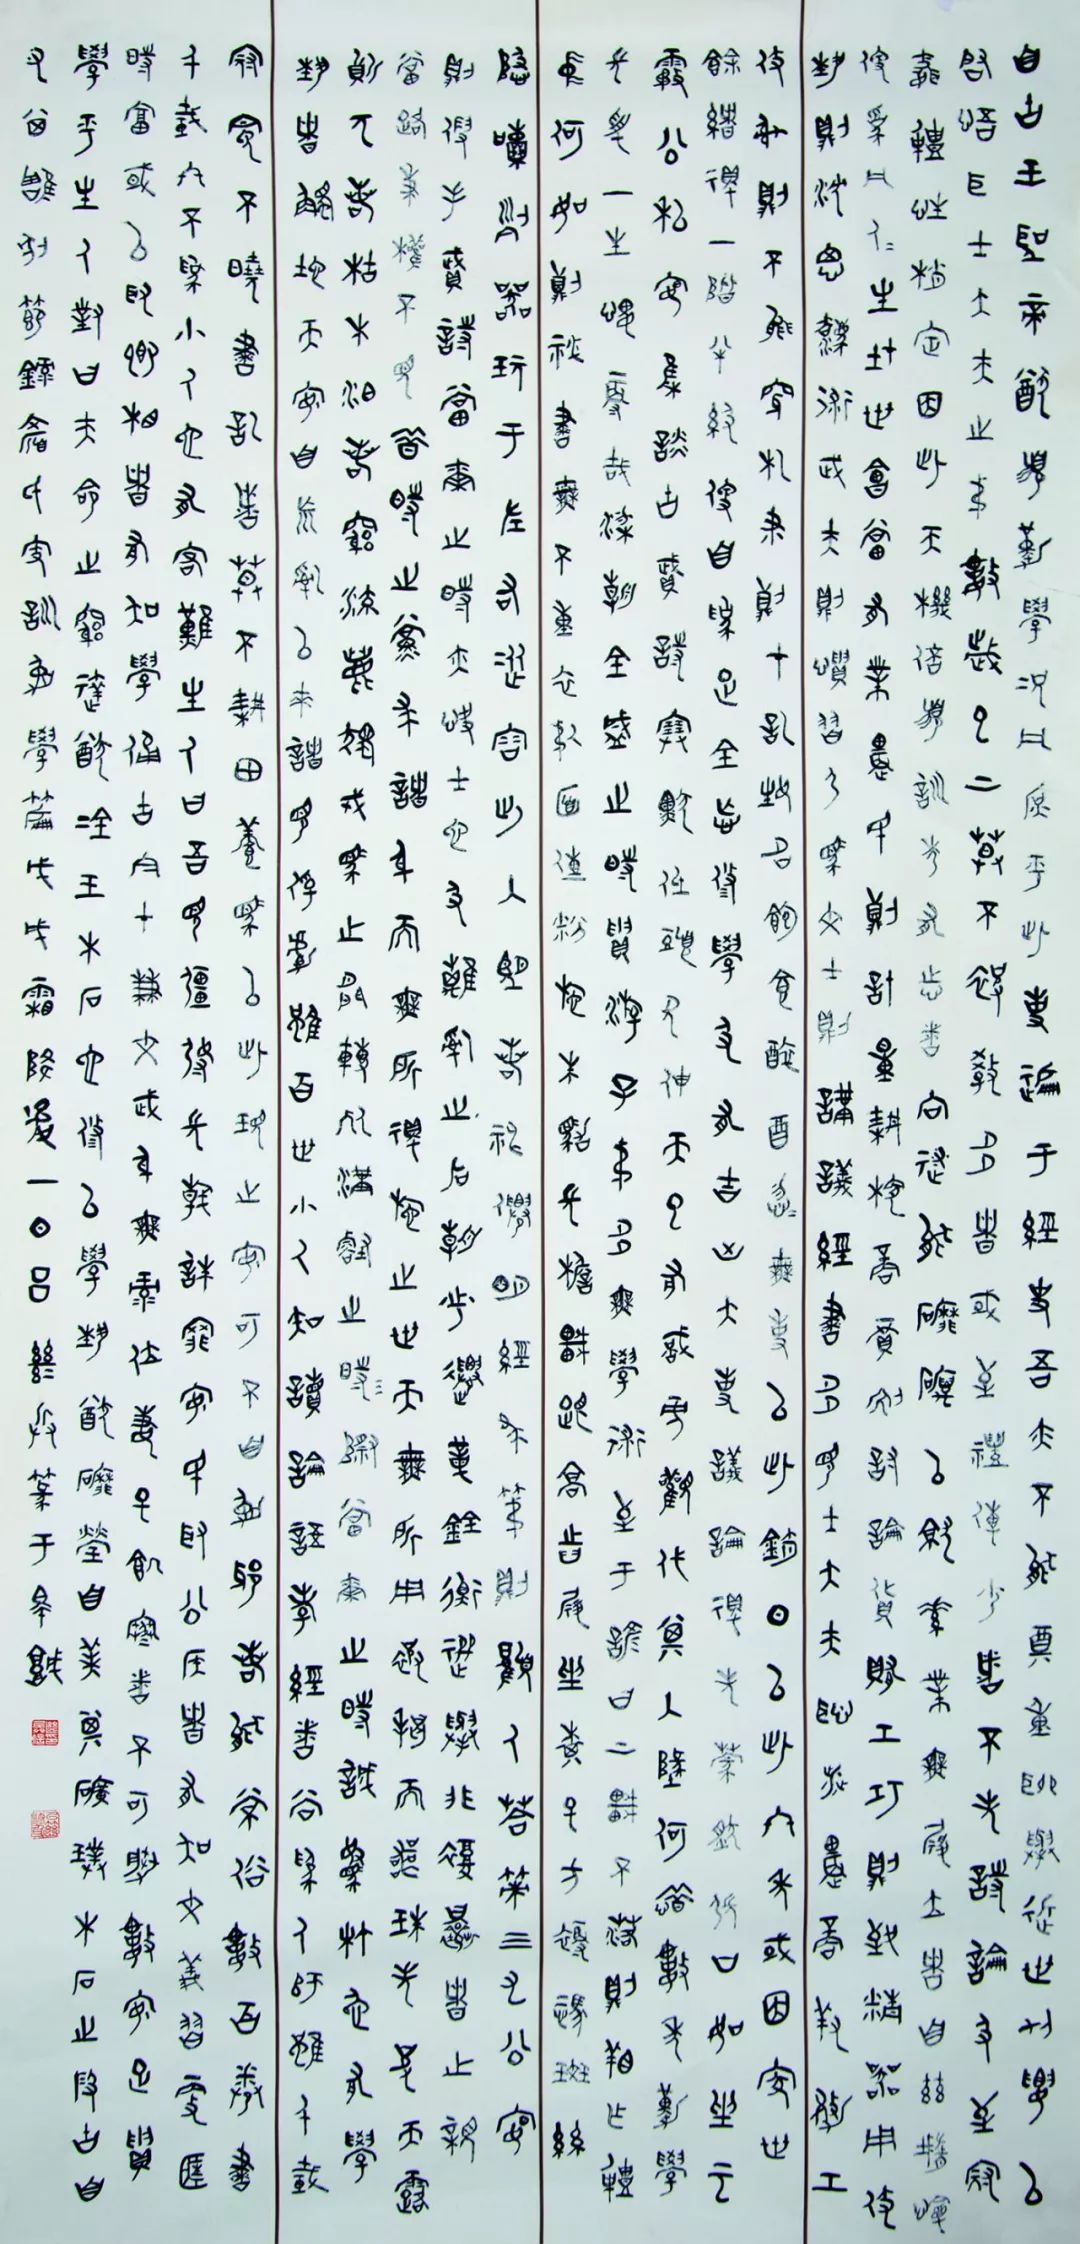 自古王聖帝猶須勤學況凡庶乎此事遍于經史吾亦不能鄭重聊舉近世切要以
啓寤士大夫之弟數歲已上莫不被教多者或至禮傳少者不失詩論及至冠
婚體性稍定因此天機倍須訓誘有志者尚遂能磨礪以就素業無履立者自茲墮慢
便為凡人生在世會當有業農民則計量耕稼商賈則討論貨賄工巧則致精器用伎
藝則沈思法術武夫則慣習弓馬文士則講議經書多見士大夫恥涉農商羞務工
伎射則不能穿札筆則才記姓名飽食醉酒忽忽無事以此銷日以此終年或因家世
餘緒得一階半級便自為足全忘修學及有吉凶大事議論得失蒙然張口如坐雲
霧公私宴集談古賦詩塞默低頭欠伸而已有識旁觀代其入地何惜數年勤學
長受一生愧辱哉梁朝全盛之時貴游子弟多無學術至于諺曰上車不落則著作體
中何如則秘書無不熏衣剃面傅粉施朱駕長檐車跟高齒屐坐棊子方褥憑斑絲
隱囊列器玩于左右從容出入望若神仙明經求第則顧人答策三九公宴
則假手賦詩當爾之時亦快士也及離亂之後朝市遷革銓衡選舉非復曩者之親
當路秉權不見昔時之黨求諸身而無所得施之世而無所用被褐而喪珠失皮而露
質兀若枯木泊若窮流鹿獨戎馬之間轉死溝壑之際當爾之時誠駑材也有學
藝者觸地而安自荒亂以來諸見俘虜雖百世小人知讀論語孝經者尚為人師雖千載
冠冕不曉書記者莫不耕田養馬以此觀之安可不自勉耶若能常保數百卷書
千載終不為小人也有客難主人曰吾見彊弩長戟誅罪安民以取公侯者有矣文義習吏匡
時富國以取卿相者有矣學備古今才兼文武身無祿位妻子飢寒者不可勝數安足貴
學乎主人對曰夫命之窮達猶金玉木石也修以學藝猶磨瑩自美其礦璞木石之段塊自
醜其雕刻節錄顏氏家訓勉學篇戊戌霜降後一日呂篆于